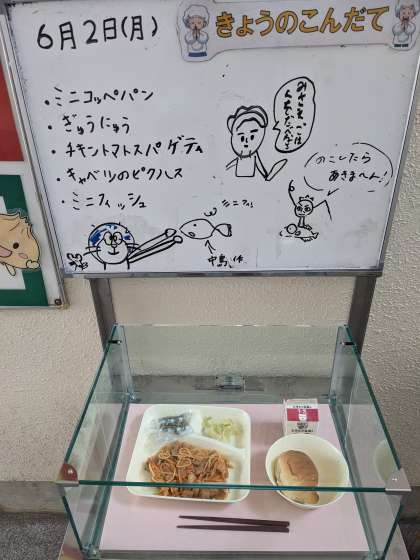 6月2日(月)
きょうのこんだて
・ミニコッペパン
・ぎゅうにゅう
・チキントマトスパゲティ
・キャベツのピクルス
・ミニフィッシュ
のこしたら
あきまへん!
ミニフィッ
中島 作